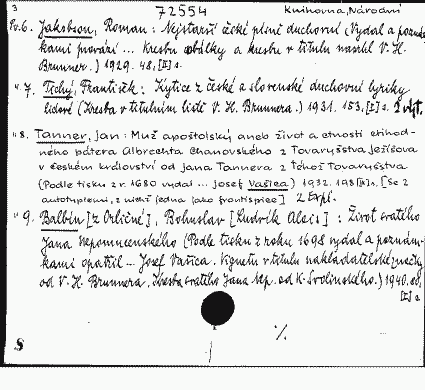 3 72554 Knihovna, Národní
Sv.6. Jakobson, Roman: Nejstarší české písně duchovní (Vydal a poznám-
kami provází ... Kresbu obálky a kresbu v titulu navrhl V. H.
Brunner.) 1929. 48, [II] s.
" 7. Tichý, František: Kytice z české a slovenské duchovní lyriky
lidové (Kresba v titulním listě V. H. Brunnera.) 1931. 153, [I] s. 2 výt.
" 8. Tanner, Jan: Muž apoštolský aneb život a ctnosti ctihod-
ného pátera Albrechta Chanovského z Tovaryšstva Ježíšova
v českém království od Jana Tannera z téhož Tovaryšstva
(Podle tisku z r. 1680 vydal ... Josef Vašica) 1932. 198 [II] s. [Se 2
autotypiemi, z nichž jedna jako frontispice] 2 Expl.
" 9. Balbín [z Orličné], Bohuslav [Ludvík Alois]: Život svatého
Jana Nepomucenského (Podle tisku z roku 1698 vydal a poznám-
kami opatřil ... Josef Vašica. Vignetu v titulu nakladatelské značky
od V. H. Brunnera. Kresba svatého Jana Nep. od K. Svolinského.) 1940.
[II] s.
S %